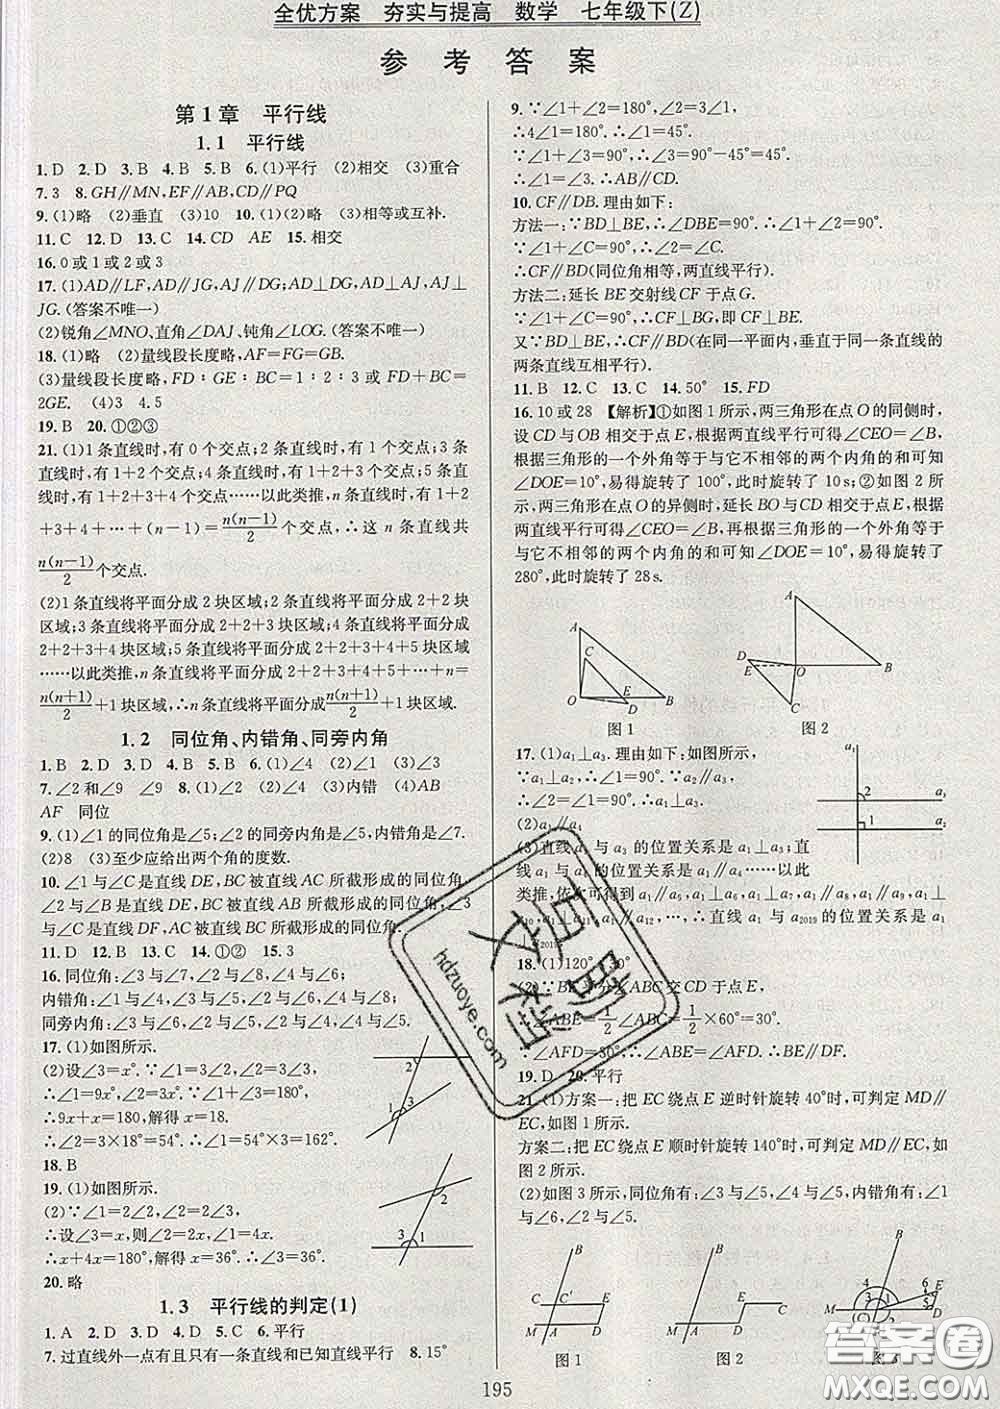 全优方案　夯实与提高　数学　七年级下(Z)
参 考 答 案
第1章　平行线
1.1　平行线
1. D　2. D　3. B　4. B　5. B　6. (1)平行　(2)相交　(3)重合
7. 3　8. GH∥MN,EF∥AB,CD∥PQ
9. (1)略　(2)垂直　(3)10　10. (1)(2)略　(3)相等或互补.
11. C　12. D　13. C　14. CD　AE　15. 相交
16. 0或1或2或3
17. (1)AD∥LF,AD∥JG,AJ∥DG;AD⊥DG,AD⊥AJ,AJ⊥
JG.(答案不唯一)
(2)锐角∠MNO,直角∠DAJ、钝角∠LOG.(答案不唯一)
18. (1)略　(2)量线段长度略,AF=FG=GB.
(3)量线段长度略,FD∶GE∶BC=1∶2∶3或FD+BC=
2GE.　(4)3　4.5
19. B　20. ①②③
21. (1)1条直线时,有0个交点;2条直线时,有1个交点;3条
直线时,有1+2个交点;4条直线时,有1+2+3个交点;5条直
线时,有1+2+3+4个交点……以此类推,n条直线时,有1+2
+3+4+…+(n-1)=n(n-1)/2个交点,∴这n条直线共
n(n-1)/2个交点.
(2)1条直线将平面分成2块区域;2条直线将平面分成2+2块
区域;3条直线将平面分成2+2+3块区域;4条直线将平面分成
2+2+3+4块区域;5条直线将平面分成2+2+3+4+5块区域
……以此类推,n条直线将平面分成2+2+3+4+5+…+n=
n(n+1)/2+1块区域,∴n条直线将平面分成n(n+1)/2+1块区域.
1.2　同位角、内错角、同旁内角
1. B　2. D　3. D　4. B　5. B　6. (1)∠4　(2)∠3　(3)∠3
7. ∠2和∠9　∠9　8. (1)∠4　(2)∠4　(3)内错　(4)AB
AF　同位
9. (1)∠1的同位角是∠5;∠2的同旁内角是∠5,内错角是∠7.
(2)8　(3)至少应给出两个角的度数.
10. ∠1与∠C是直线DE,BC被直线AC所截形成的同位角,
∠2与∠B是直线DE,BC被直线AB所截形成的同旁内角,
∠3与∠C是直线DF,AC被直线BC所截形成的同位角.
11. D　12. B　13. A　14. ①②　15. 3
16. 同位角:∠3与∠7,∠2与∠8,∠4与∠6;
内错角:∠1与∠4,∠3与∠5,∠2与∠6,∠4与∠8;
同旁内角:∠3与∠6,∠2与∠5,∠2与∠4,∠4与∠5.
17. (1)如图所示.
(2)设∠3=x°.∵∠1=3∠3,
∴∠1=3x°,∠2=3∠1=9x°.
∵∠2+∠3=180°,
∴9x+x=180,解得x=18.
∴∠2=3×3×18°=162°.
18. B
19. (1)如图所示.
(2)∵∠1=2∠2,∠2=2∠3,
∴设∠3=x,则∠2=2x,∠1=4x.
∴x+4x=180°,解得x=36°.∴∠3=36°.
20. 略
1.3　平行线的判定(1)
1. A　2. D　3. D　4. D　5. C　6. 平行
7. 过直线外一点有且只有一条直线和已知直线平行　8. 15°
9. ∵∠1+∠2=180°,∠2=3∠1,
∴4∠1=180°.∴∠1=45°.
∵∠2+∠3=90°,∴∠3=90°-45°=45°.
∴∠1=∠3.∴AB∥CD.
10. CF∥DB.理由如下:
方法一:∵BD⊥BE,∴∠DBE=90°.∴∠1+∠2=90°.
∵∠1+∠C=90°,∴∠2=∠C.
∴CF∥BD(同位角相等,两直线平行).
方法二:延长BE交射线CF于点G.
∵∠1+∠C=90°,∴CF⊥BG,即CF⊥BE.
又∵BD⊥BE,∴CF∥BD(在同一平面内,垂直于同一条直线的
两条直线互相平行).
11. B　12. C　13. C　14. 50°　15. FD
16. 10或28　【解析】①如图1所示,两三角形在点O的同侧时,
设CD与OB相交于点E,根据两直线平行可得∠CEO=∠B,
根据三角形的一个外角等于与它不相邻的两个内角的和可知
∠DOE=10°,易得旋转了100°,此时旋转了10s;②如图2所
示,两三角形在点O的异侧时,延长BO与CD相交于点E,根据
两直线平行可得∠CEO=∠B,再根据三角形的一个外角等于
与它不相邻的两个内角的和可知∠DOE=10°,易得旋转了
280°,此时旋转了28s.
A C O E D B
图1
A D E O B C
图2
17. (1)a₁⊥a₃.理由如下:如图所示,
∵a₁⊥a₂,∴∠1=90°.∵a₂∥a₃,
∴∠2=∠1=90°.∴a₁⊥a₃.
(2)a₁∥a₄
(3)直线a₁与a₃的位置关系是a₁⊥a₃;直
线a₁与a₄的位置关系是a₁∥a₄……以此
类推,依次可得到a₁∥a₅,a₁⊥a₆,a₁⊥a₇,a₁∥a₈,a₁∥a₉,a₁⊥
a₁₀,a₁⊥a₁₁,a₁∥a₁₂,…,∴直线a₁与a₂₀₁₉的位置关系是a₁
⊥a₂₀₁₉.
a₁ 2 a₃ 1 a₂
18. (1)120°　30°
(2)∵BE平分∠ABC交CD于点E,
∴∠ABE=1/2∠ABC=1/2×60°=30°.
∵∠AFD=30°,∴∠ABE=∠AFD.∴BE∥DF.
19. D　20. 平行
21. (1)方案一:把EC绕点E逆时针旋转40°时,可判定MD∥
EC,如图1所示.
方案二:把EC绕点E顺时针旋转140°时,可判定MD∥EC,如
图2所示.
(2)如图3所示,同位角有:∠3与∠5,∠4与∠5,内错角有:∠1
与∠6,∠2与∠5.
图1
图2
图3
195
hdzuoye.com
答案圈
MXQE.COM